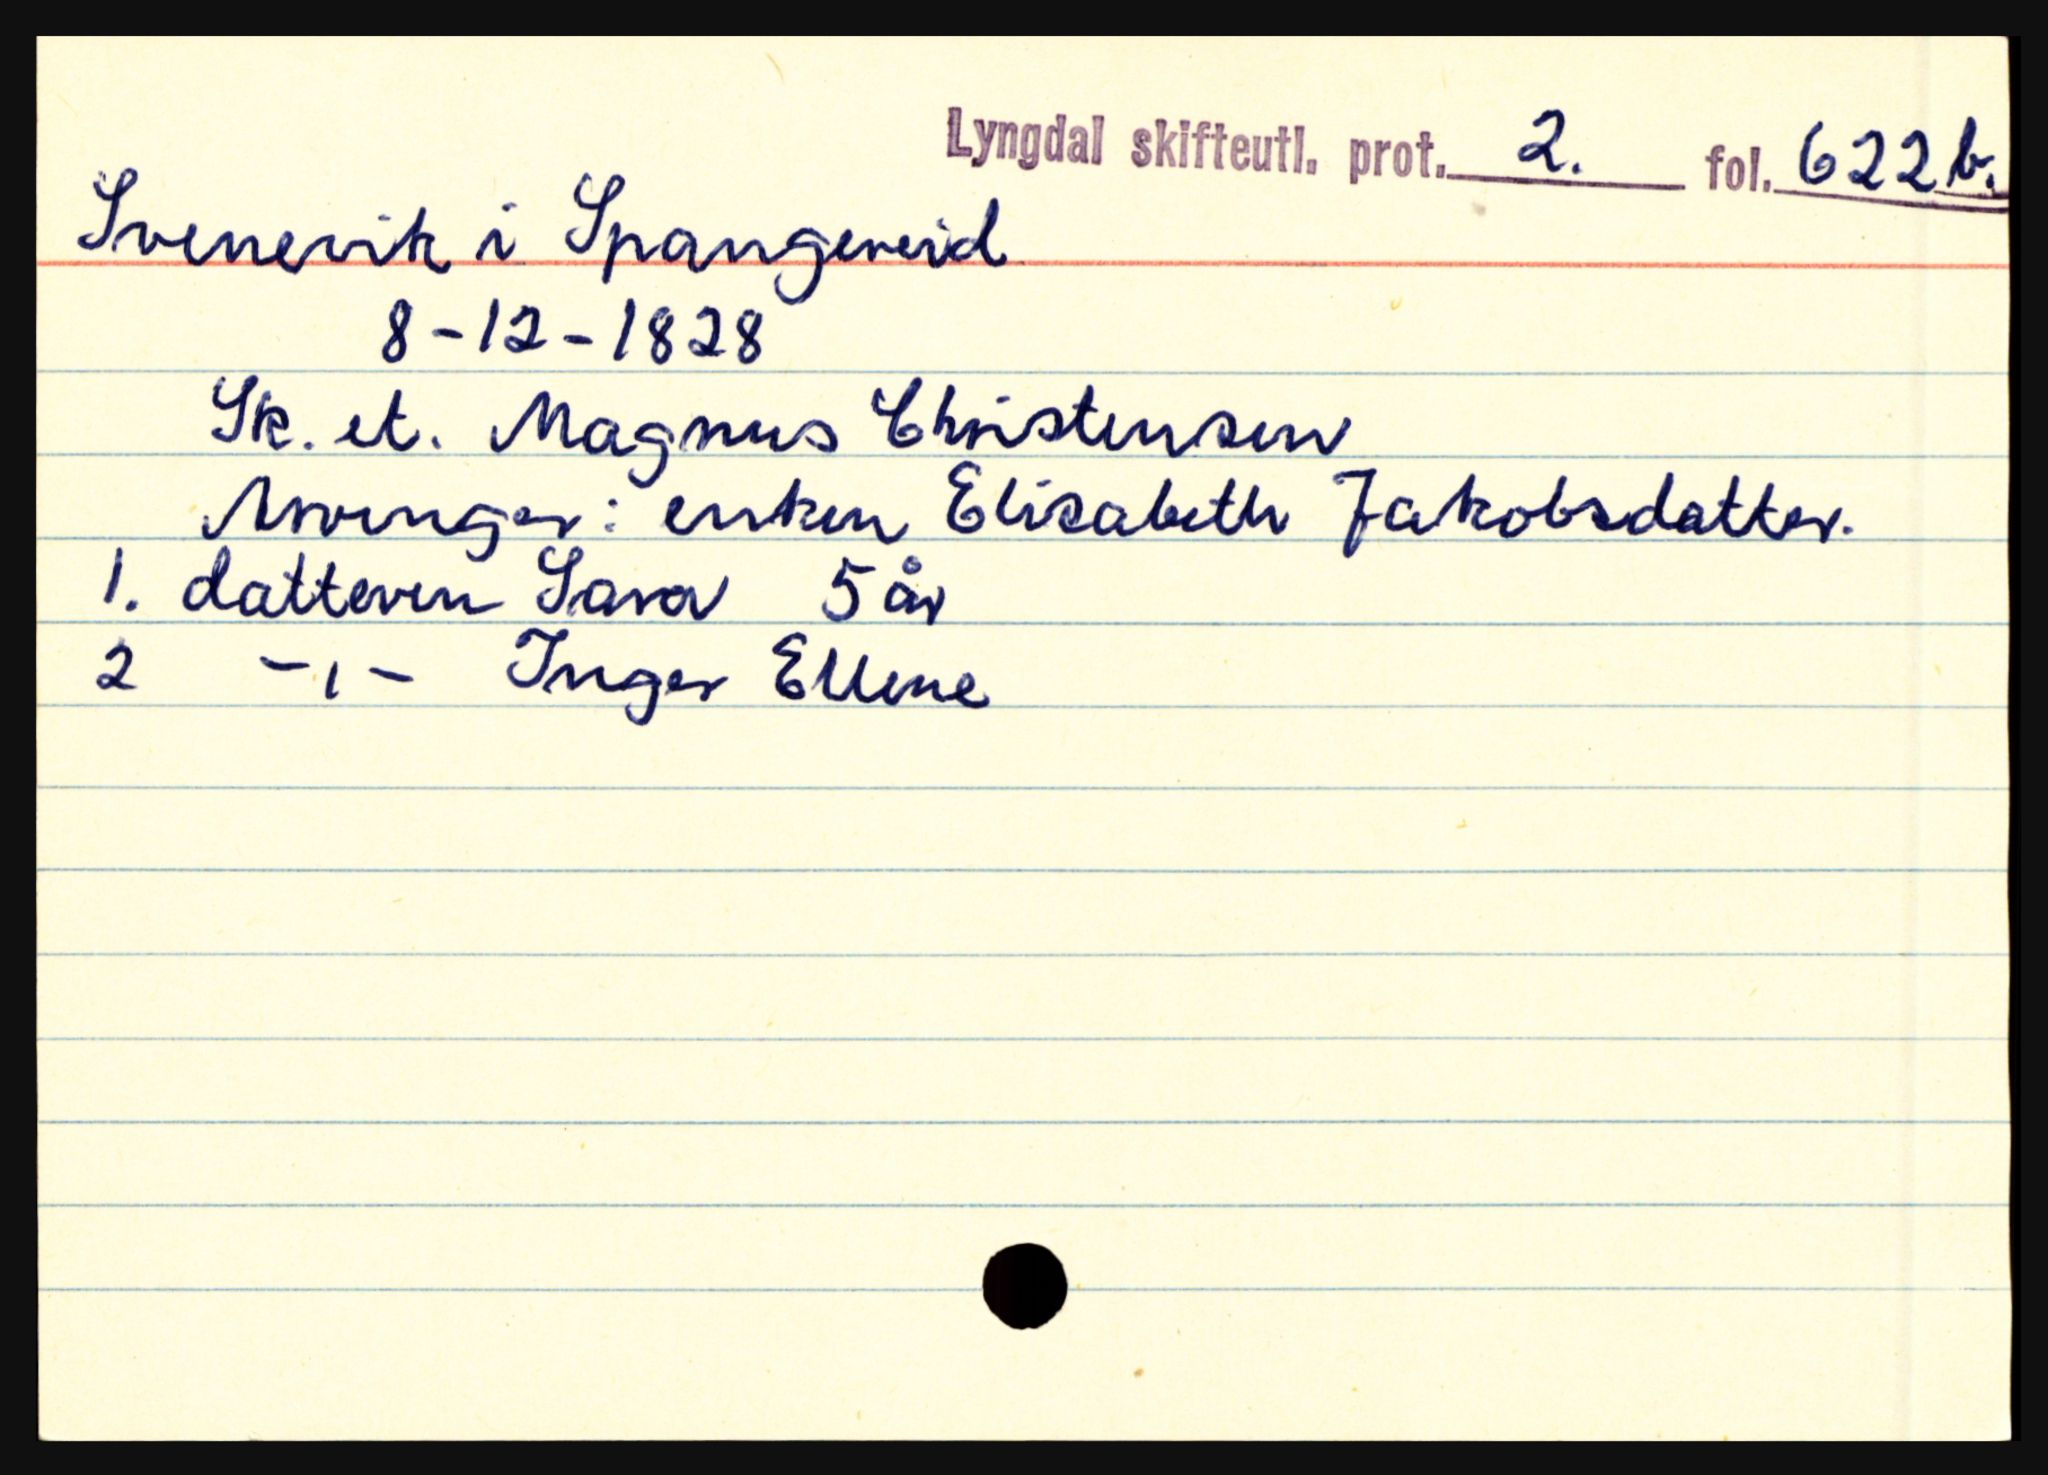 Lyngdal skifteutl. prot. 2. fol. 622b.
Svenevik i Spangereid
8-12-1828
Sk. et. Magnus Christensen
Arvinger: enken Elisabeth Jakobsdatter.
1. datteren Sara 5 år
2 -,- Inger Ellene